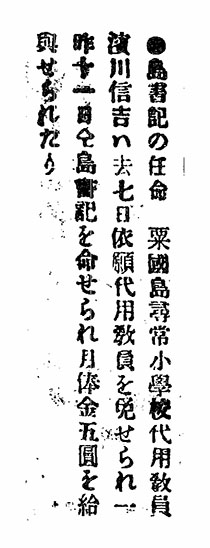 ●島書記の任命　粟國島尋常小學校代用教員
濱川信吉ハ去七日依願代用教員を免せられ一
昨十一日仝島書記を命せられ月俸金五圓を給
與せられたり